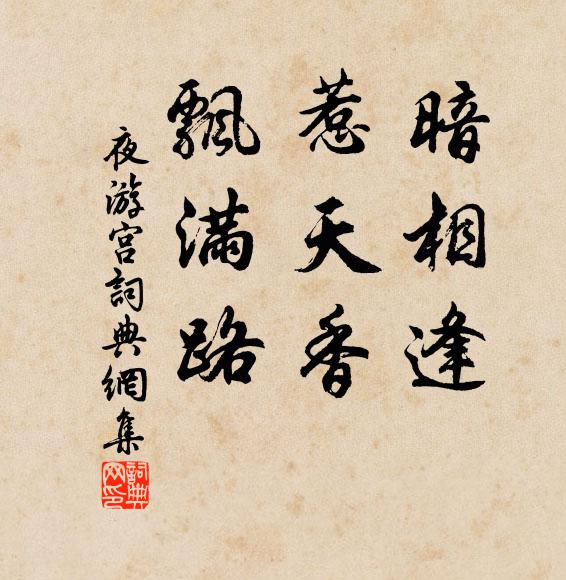 暗相逢
惹天香
飄滿路
夜游宮詞典網集
詞典
网印